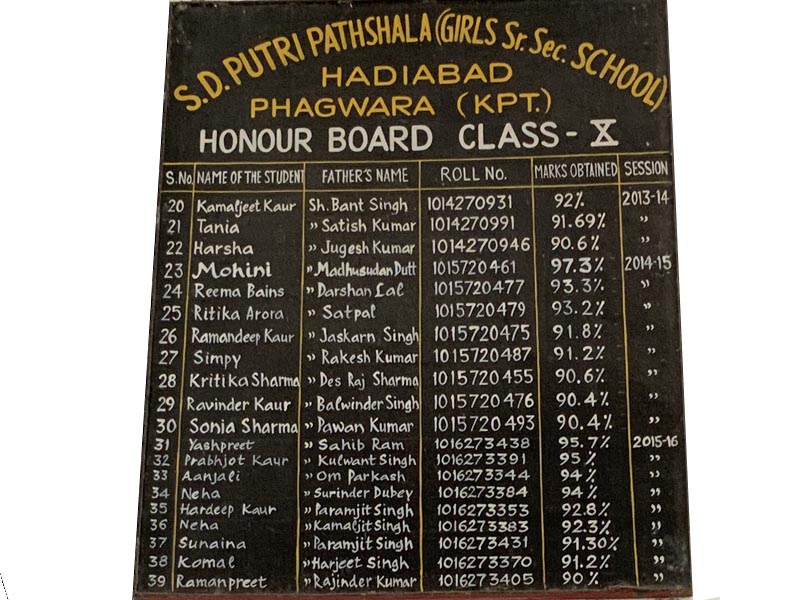 S.D. PUTRI PATHSHALA (GIRLS Sr. Sec. SCHOOL)
HADIABAD
PHAGWARA (KPT.)
HONOUR BOARD CLASS - X
S.No. NAME OF THE STUDENT FATHER'S NAME ROLL No. MARKS OBTAINED SESSION
20 Kamaljeet Kaur Sh. Bant Singh 1014270931 92% 2013-14
21 Tania " Satish Kumar 1014270991 91.69% "
22 Harsha " Jugesh Kumar 1014270946 90.6% "
23 Mohini " Madhusudan Dutt 1015720461 97.3% 2014-15
24 Reema Bains " Darshan Lal 1015720477 93.3% "
25 Ritika Arora " Satpal 1015720479 93.2% "
26 Ramandeep Kaur " Jaskarn Singh 1015720475 91.8% "
27 Simpy " Rakesh Kumar 1015720487 91.2% "
28 Kritika Sharma " Des Raj Sharma 1015720455 90.6% "
29 Ravinder Kaur " Balwinder Singh 1015720476 90.4% "
30 Sonia Sharma " Pawan Kumar 1015720493 90.4% "
31 Yashpreet " Sahib Ram 1016273438 95.7% 2015-16
32 Prabhjot Kaur " Kulwant Singh 1016273391 95% "
33 Aanjali " Om Parkash 1016273344 94% "
34 Neha " Surinder Dubey 1016273384 94% "
35 Hardeep Kaur " Paramjit Singh 1016273353 92.8% "
36 Neha " Kamaljit Singh 1016273383 92.3% "
37 Sunaina " Paramjit Singh 1016273431 91.30% "
38 Komal " Harjeet Singh 1016273370 91.2% "
39 Ramanpreet " Rajinder Kumar 1016273405 90% "